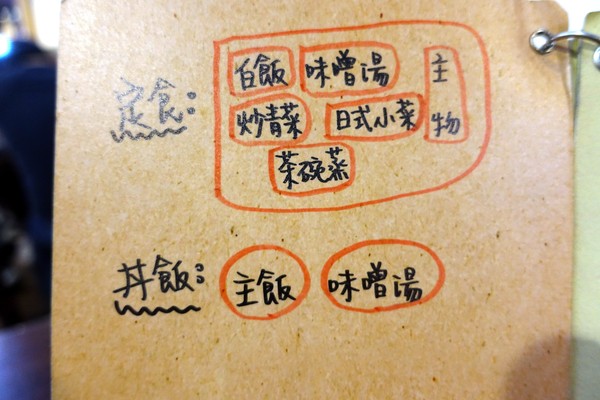 定食:
白飯 味噌湯 主物
炒青菜 日式小菜
茶碗蒸
丼飯: 主飯 味噌湯